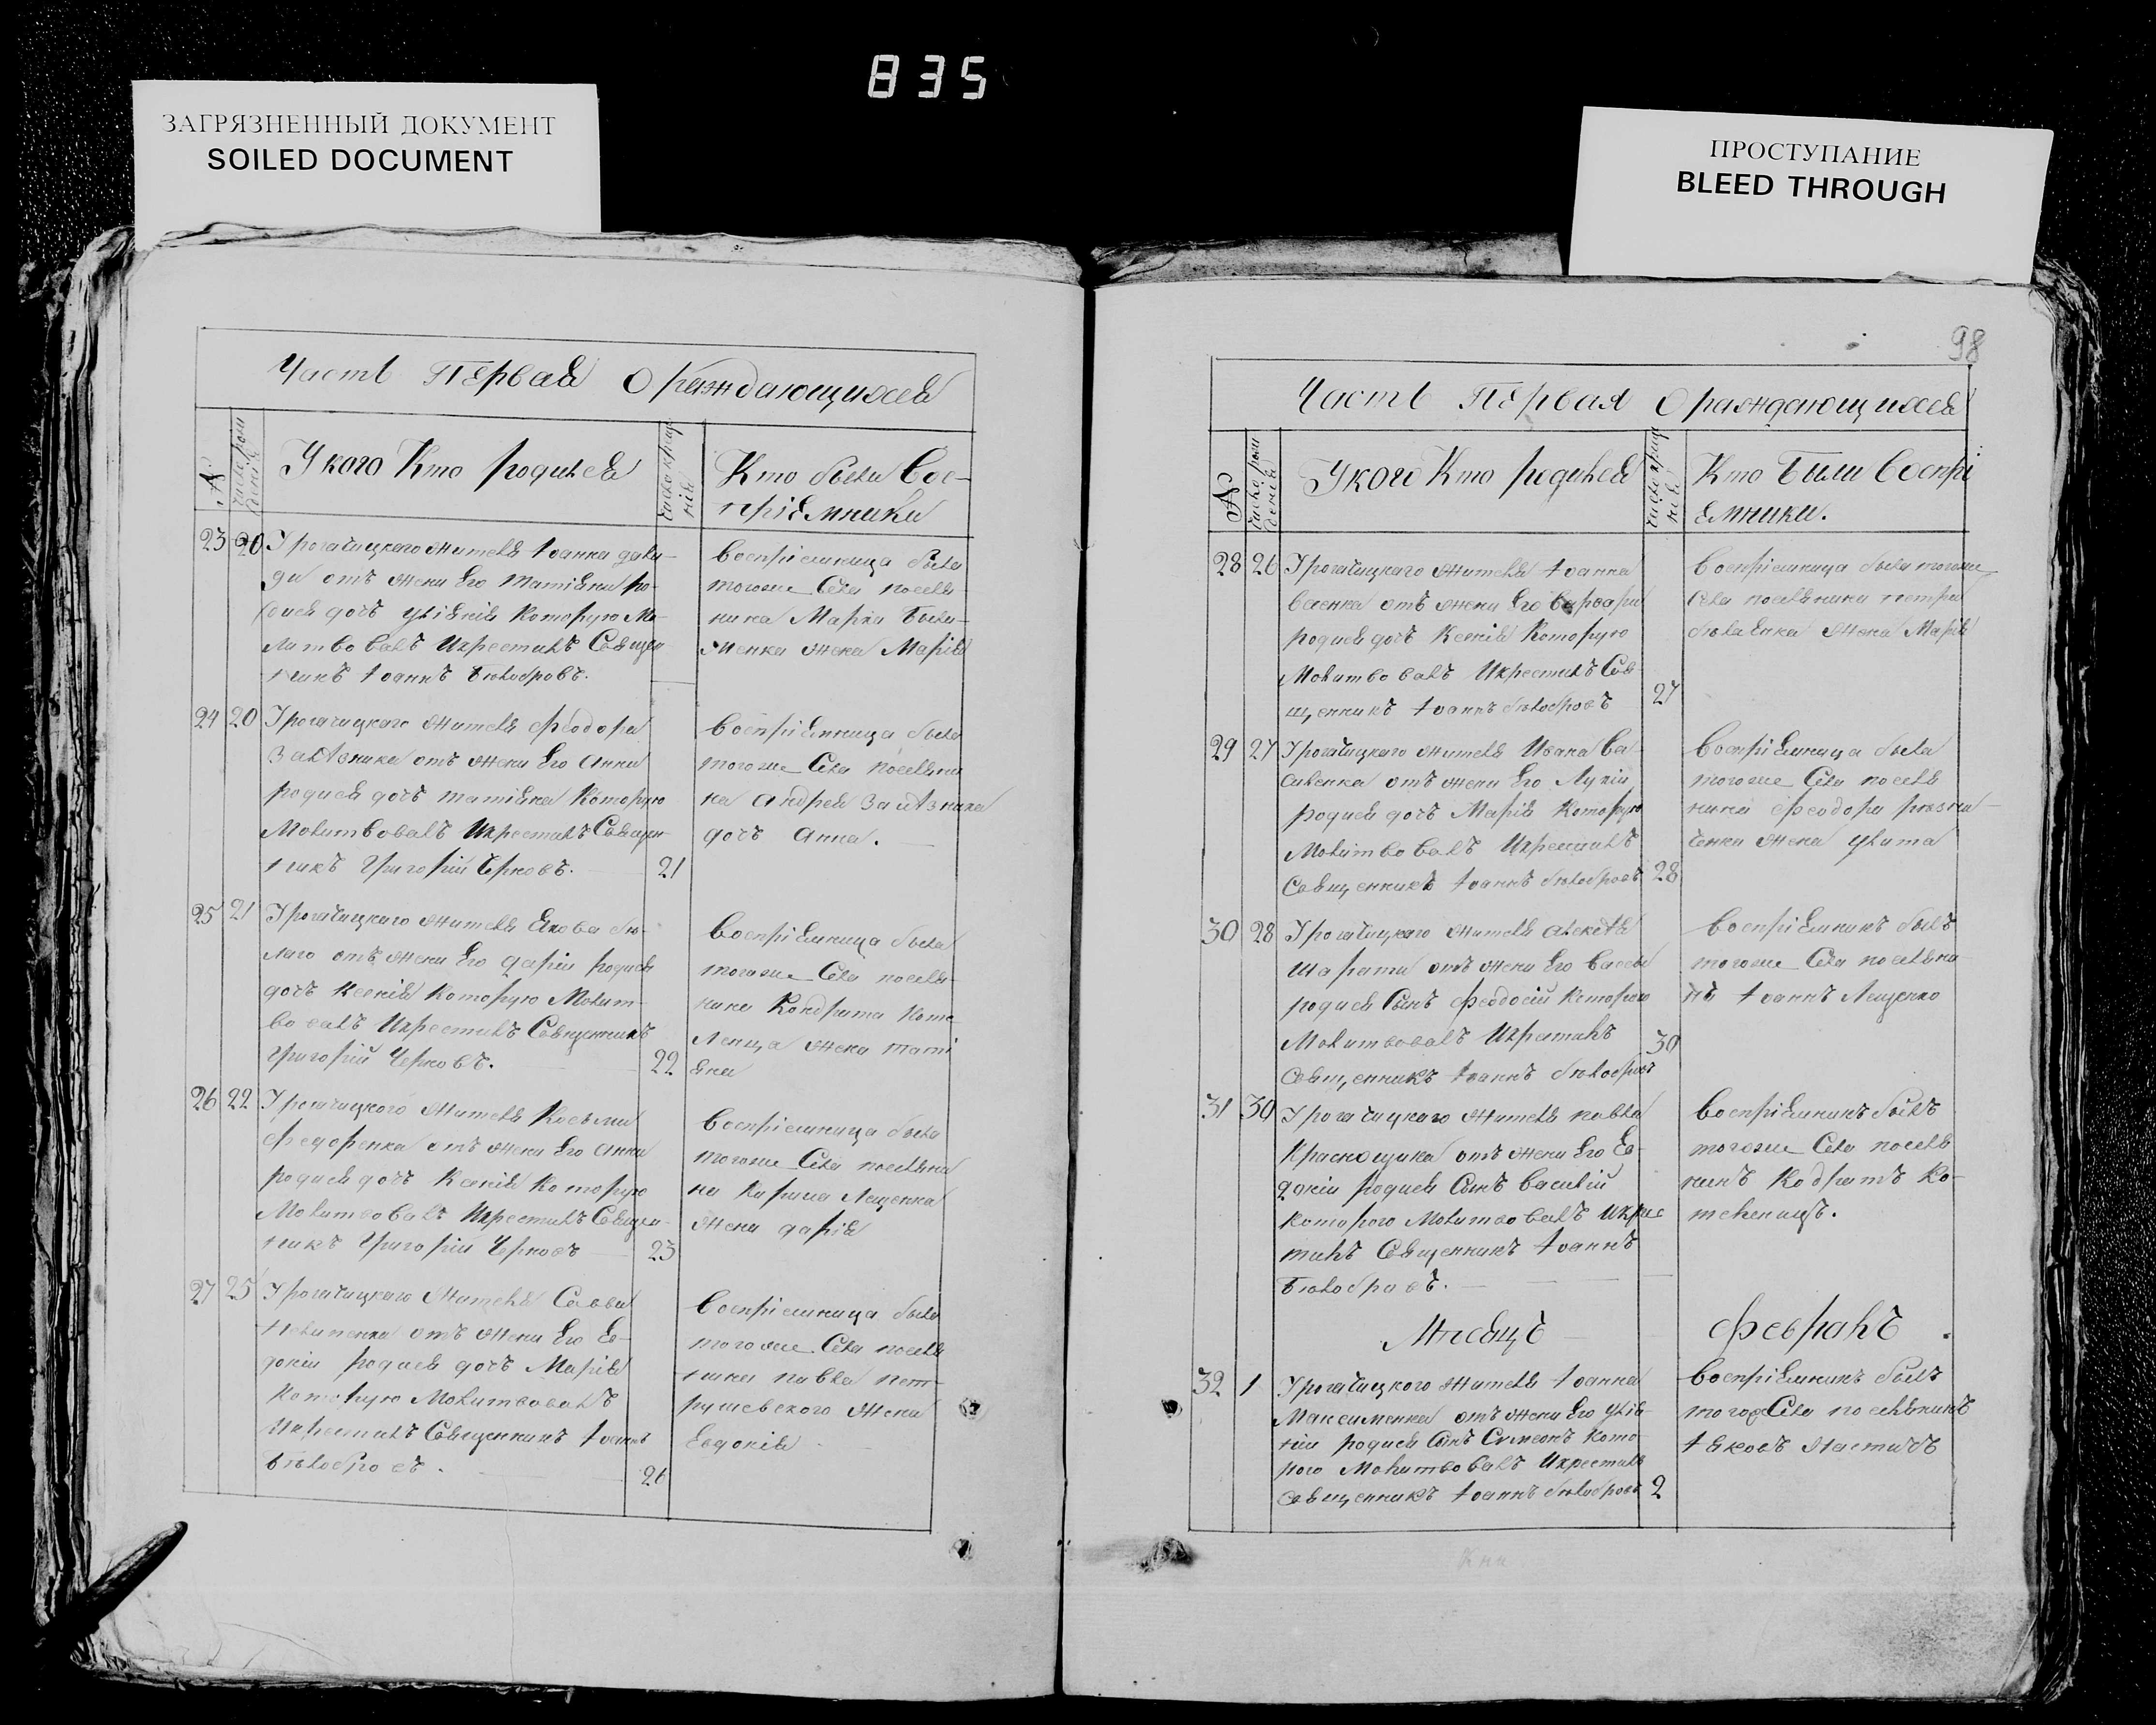 835
ЗАГРЯЗНЕННЫЙ ДОКУМЕНТ
SOILED DOCUMENT
ПРОСТУПАНИЕ
BLEED THROUGH
Часть Первая О раждающихся
№
число рож
денія
У кого Кто родился
число крще
нія
Кто были Вос-
пріемники
23 20 У рогачицкаго жителя Іоанна
отъ жены Его Татіяны ро-
дися дочь Уліянія которую Мо-
литвовалъ Икрестилъ Священ
никъ Іоаннъ Бѣлобровъ.
воспріемница была
тогоже Села поселя
нина Марка
женка жена Марія
24 20 У рогачицкаго жителя Феодора
отъ жены Его Анны
родися дочь Татіяна которую
Молитвовалъ Икрестилъ Священ-
никъ Григорій Черновъ.
21
воспріемница была
тогоже Села поселяни
на Андрея
дочь Анна.
25 21 У рогачицкаго жителя Якова бѣ-
лаго отъ жены Его Даріи родися
дочь Ксенія которую Молит-
вовалъ Икрестилъ Священникъ
Григорій Черновъ.
22
Воспріемница была
тогоже Села поселя-
нина Кондрата Коте
ленца жена Таті
яна
26 22 У рогачицкого жителя Косьмы
Федоренка отъ жены Его Анны
родися дочь Ксенія которую
Молитвовалъ Икрестилъ Священ-
никъ Григорій Черновъ
23
Воспріемница была
тогоже Села поселяни
на Карпа Лещенка
жена Дарія
27 25 У рогачицкаго жителя Саввы
отъ жены Его Ев-
докіи родися дочь Марія
которую Молитвовалъ
Икрестилъ Священникъ Іоаннъ
Бѣлобровъ.
26
Воспріемница была
тогоже Села поселя
нина Павла Пет-
рушевского жена
Евдокія
98
Часть Первая О раждающихся
№
число рож
денія
У кого Кто родился
число крще
нія
Кто Были Воспрі
Емники.
28 26 У рогачицкаго жителя Іоанна
отъ жены Его Варвары
родися дочь Ксенія которую
Молитвовалъ Икрестилъ Свя
щенникъ Іоаннъ бѣлобровъ
27
Воспріемница была тогоже
Села поселянина Петра
жена Марія
29 27 У рогачицкаго жителя Исака Ва-
силенка отъ жены Его Лукіи
родися дочь Марія которую
Молитвовалъ Икрестилъ
Священникъ Іоаннъ бѣлобровъ
28
Воспріемница была
тогоже Села поселя
нина Феодора рѣзни-
ченка жена Улита
30 28 У рогачицкаго жителя Алексѣя
Шараты отъ жены Его Вассы
родися Сынъ Феодосій которого
Молитвовалъ Икрестилъ
Священникъ Іоаннъ бѣлобровъ
30
Воспріемникъ былъ
тогоже Села поселяни-
нъ Іоаннъ Лещенко
31 30 У рогачицкаго жителя Павла
Краснощика отъ жены Его Ев-
докіи родися Сынъ Василій
которого Молитвовалъ Икрес
тилъ Священникъ Іоаннъ
Бѣлобровъ.
Воспріемникъ былъ
тогоже Села поселя
нинъ Кодратъ Ко-
теленецъ.
Мѣсяцъ Февраль
32 1 У рогачицкого жителя Іоанна
Максименка отъ жены Его Улія-
ніи родися Сынъ Симеонъ Кото-
рого Молитвовалъ Икрестилъ
Священникъ Іоаннъ бѣлобровъ
2
Воспріемникъ былъ
тогоже Села поселянинъ